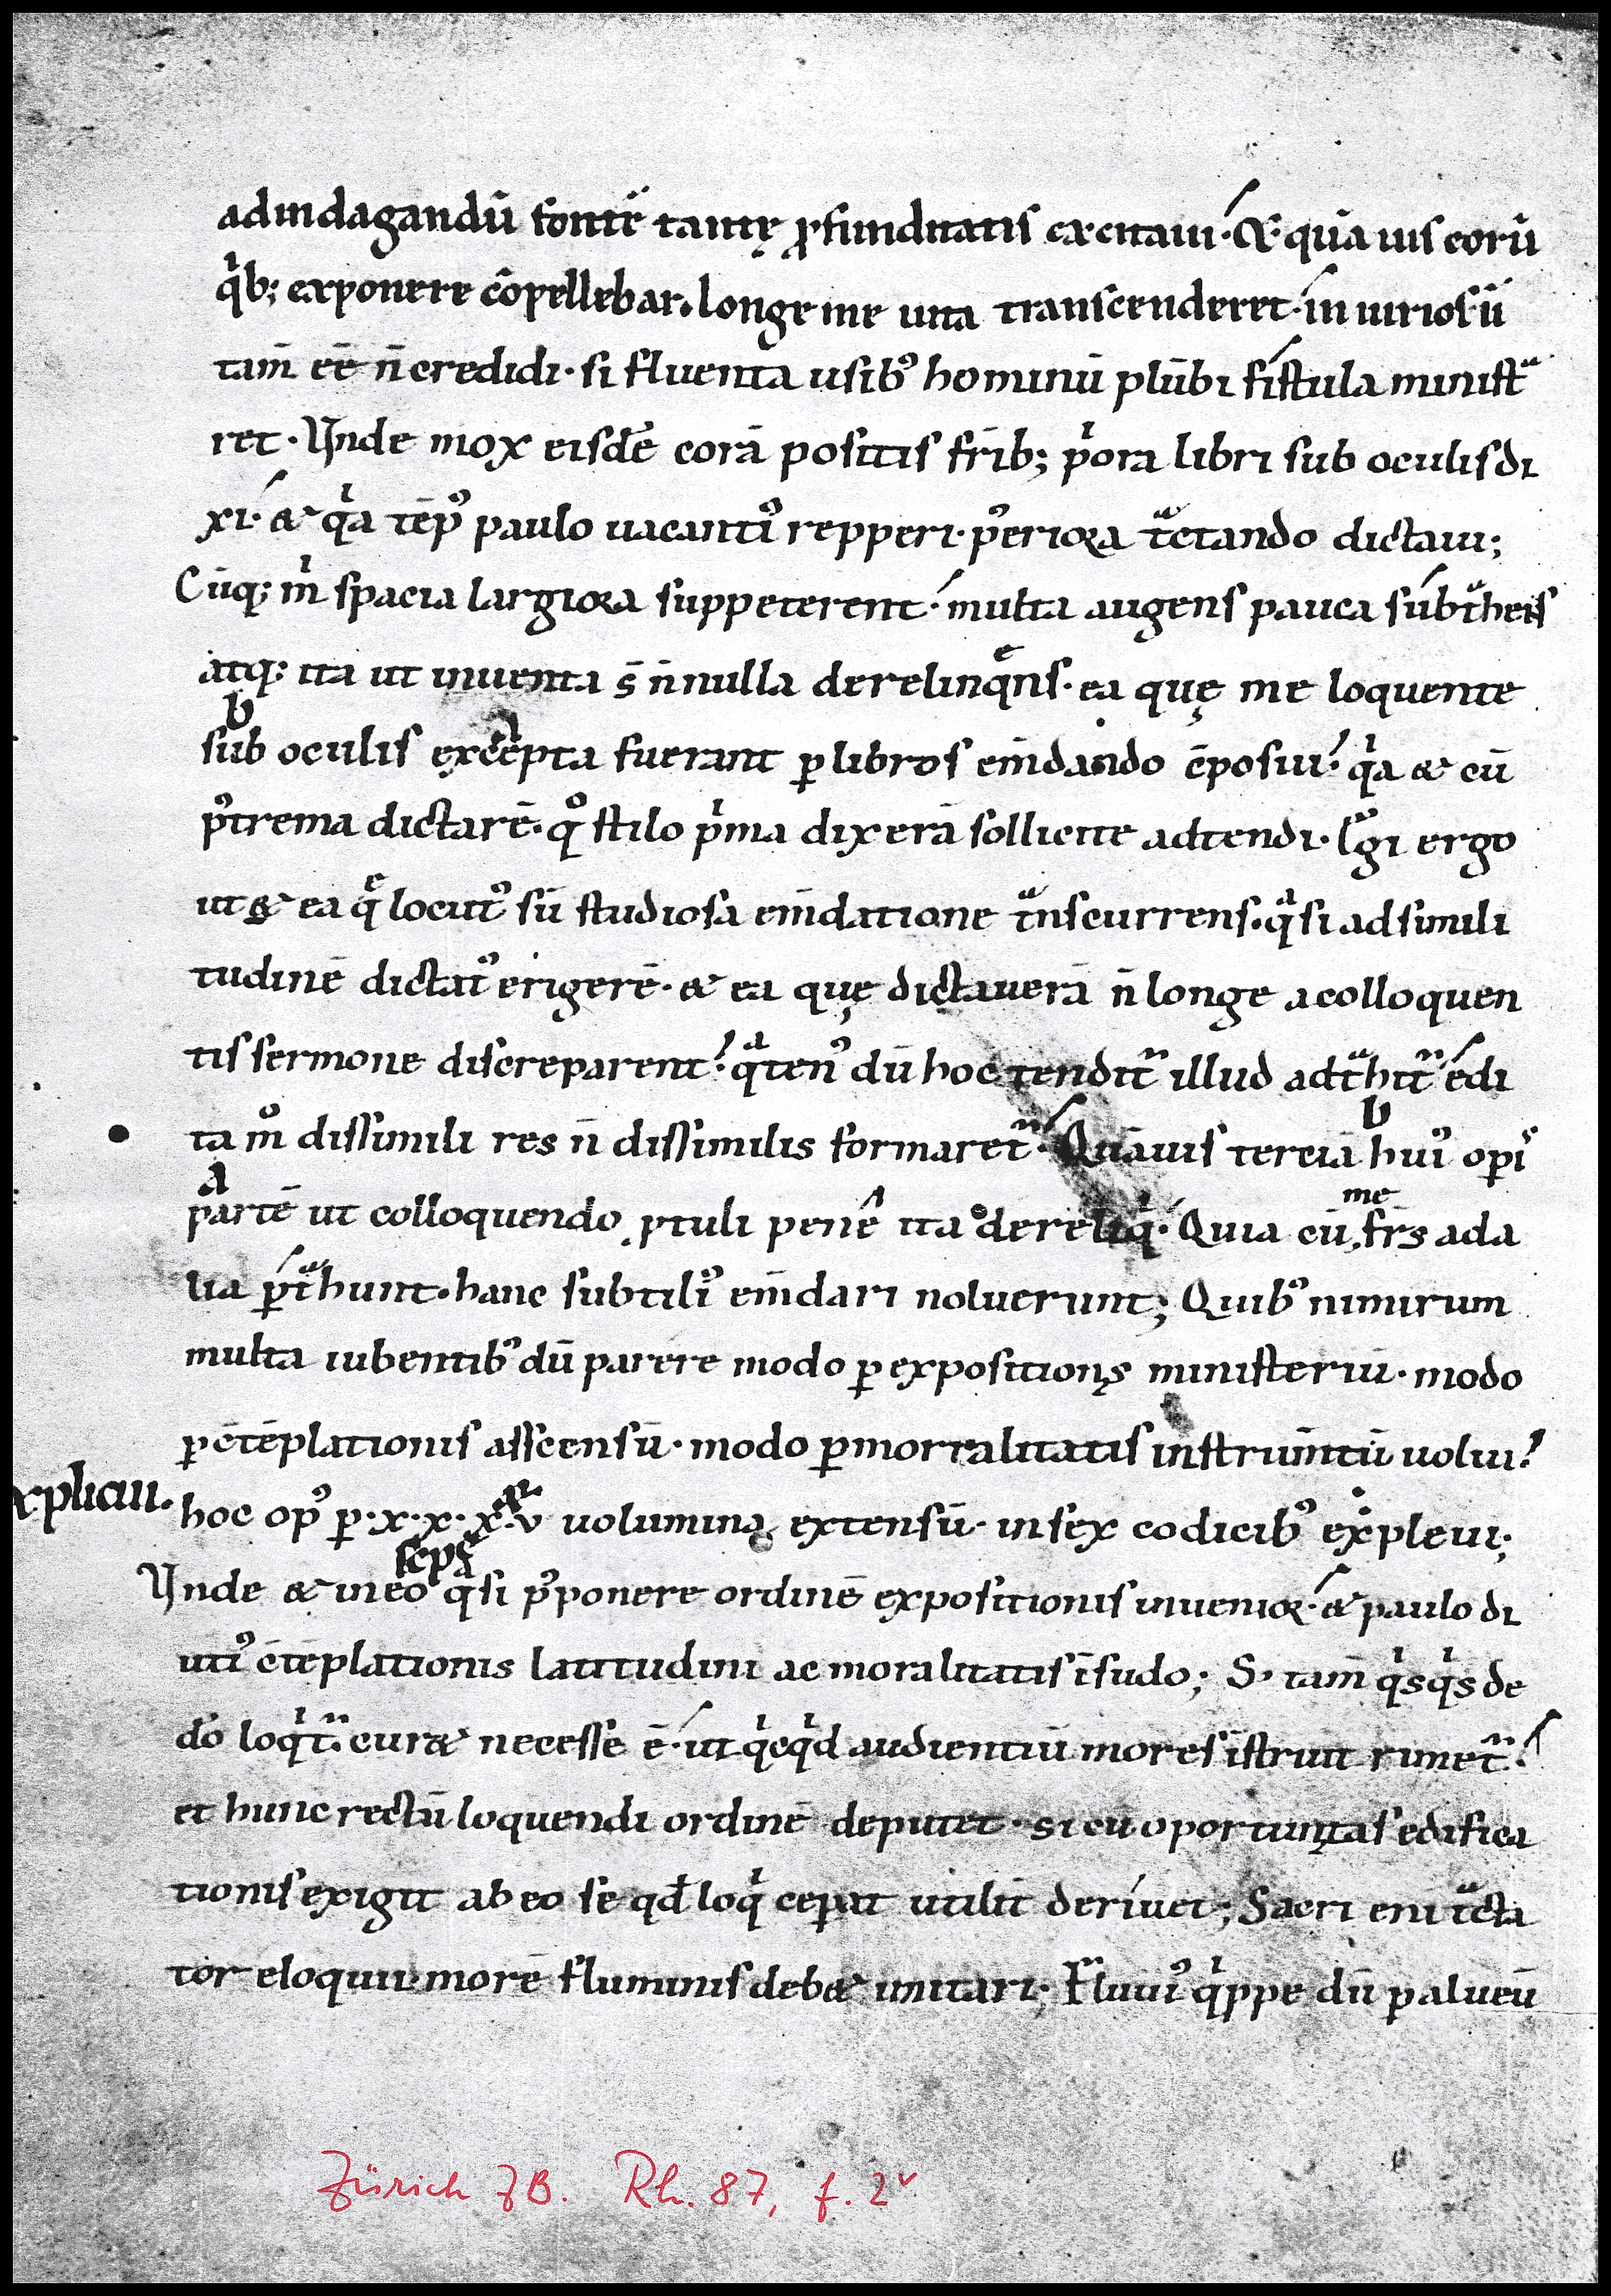 adindagandū fontē tantę ꝓfunditatis excitaui· &· quā uis eorū
qͥb; exponere cōpellebar. longe me uita transcenderet· in iuriosū
tam̄ eē n̄ credidi· si fluenta usibꝰ hominū plūbi fistula ministᷓ
ret· Vnde mox eisdē corā positis frīb; pͥora libri sub oculis di
xi· & qͥa tēpꝰ paulo uacantiꝰ repperi· pꝰterioꝛa tᷓctando dictaui;
Cūq; mͥ spacia largioꝛa suppeterent· multa augens pauca subtᷓhens
atq; ita ut inuenta s̄ n̄nulla derelinqͤns· ea quę me loquente
sub oculis excepta fuerant ꝑ libros em̄dando cō̄posui· qͥa & cū
pꝰtrema dictarē· qͦ stilo pͥma dixerā sollicite adtendi· Egͦi ergo
ut & ea qͤ locutꝰ sū studiosa em̄datione tᷓnscurrens· qᷓsi ad simili
tudinē dictatꝰ erigerē· & ea quę dictauerā n̄ longe a colloquen
tis sermone discreparent· qᷓtenꝰ dū hoc tenditᷣ illud adtᷓhitᷣ edi
ta mͦ dissimili res n̄ dissimilis formaretᷣ· Quāuis terciā huiꝰ opꝭ
b
a
partē ut colloquendo ꝓtuli penê ita dereliqͥ· Quia cū me frs̄ ad a
lia ꝑtᷓhunt· hanc subtiliꝰ em̄dari noluerunt; Quibꝰ nimirum
multa iubentibꝰ dū parere modo ꝑ expositionis ministeriū· modo
ꝑ cōtēplationis asscensū· modo ꝑ moralitatis instrum̄tū uolui·
xplicui.
hoc opꝰ ꝑ· x· x· x· v uolumina extensū· in sex codicibꝰ expleui;
Vnde & in eo sepe qᷓsi pꝰponere ordinē expositionis inuenioꝛ· & paulo di
utiꝰ cōtēplationis latitudini ac moralitatis īsudo; S; tam̄ qͥsqͥs de
dō loqͥtᷣ· cur& necesse ē· ut qͥcqͥd audientiū mores īstruit rimetᷣ·
et hunc rectū loquendi ordinē deputet· si cū oportunitas edifica
tionis exigit ab eo se qd̄ loqͥ ceperat utilit̄ deriuet; Sacri eni tᷓcta
tor eloquii· morē fluminis deb& imitari· Fluuiꝰ qͥppe dū ꝑ alueū
Zürich ZB. Rh. 87, f. 2ᵛ